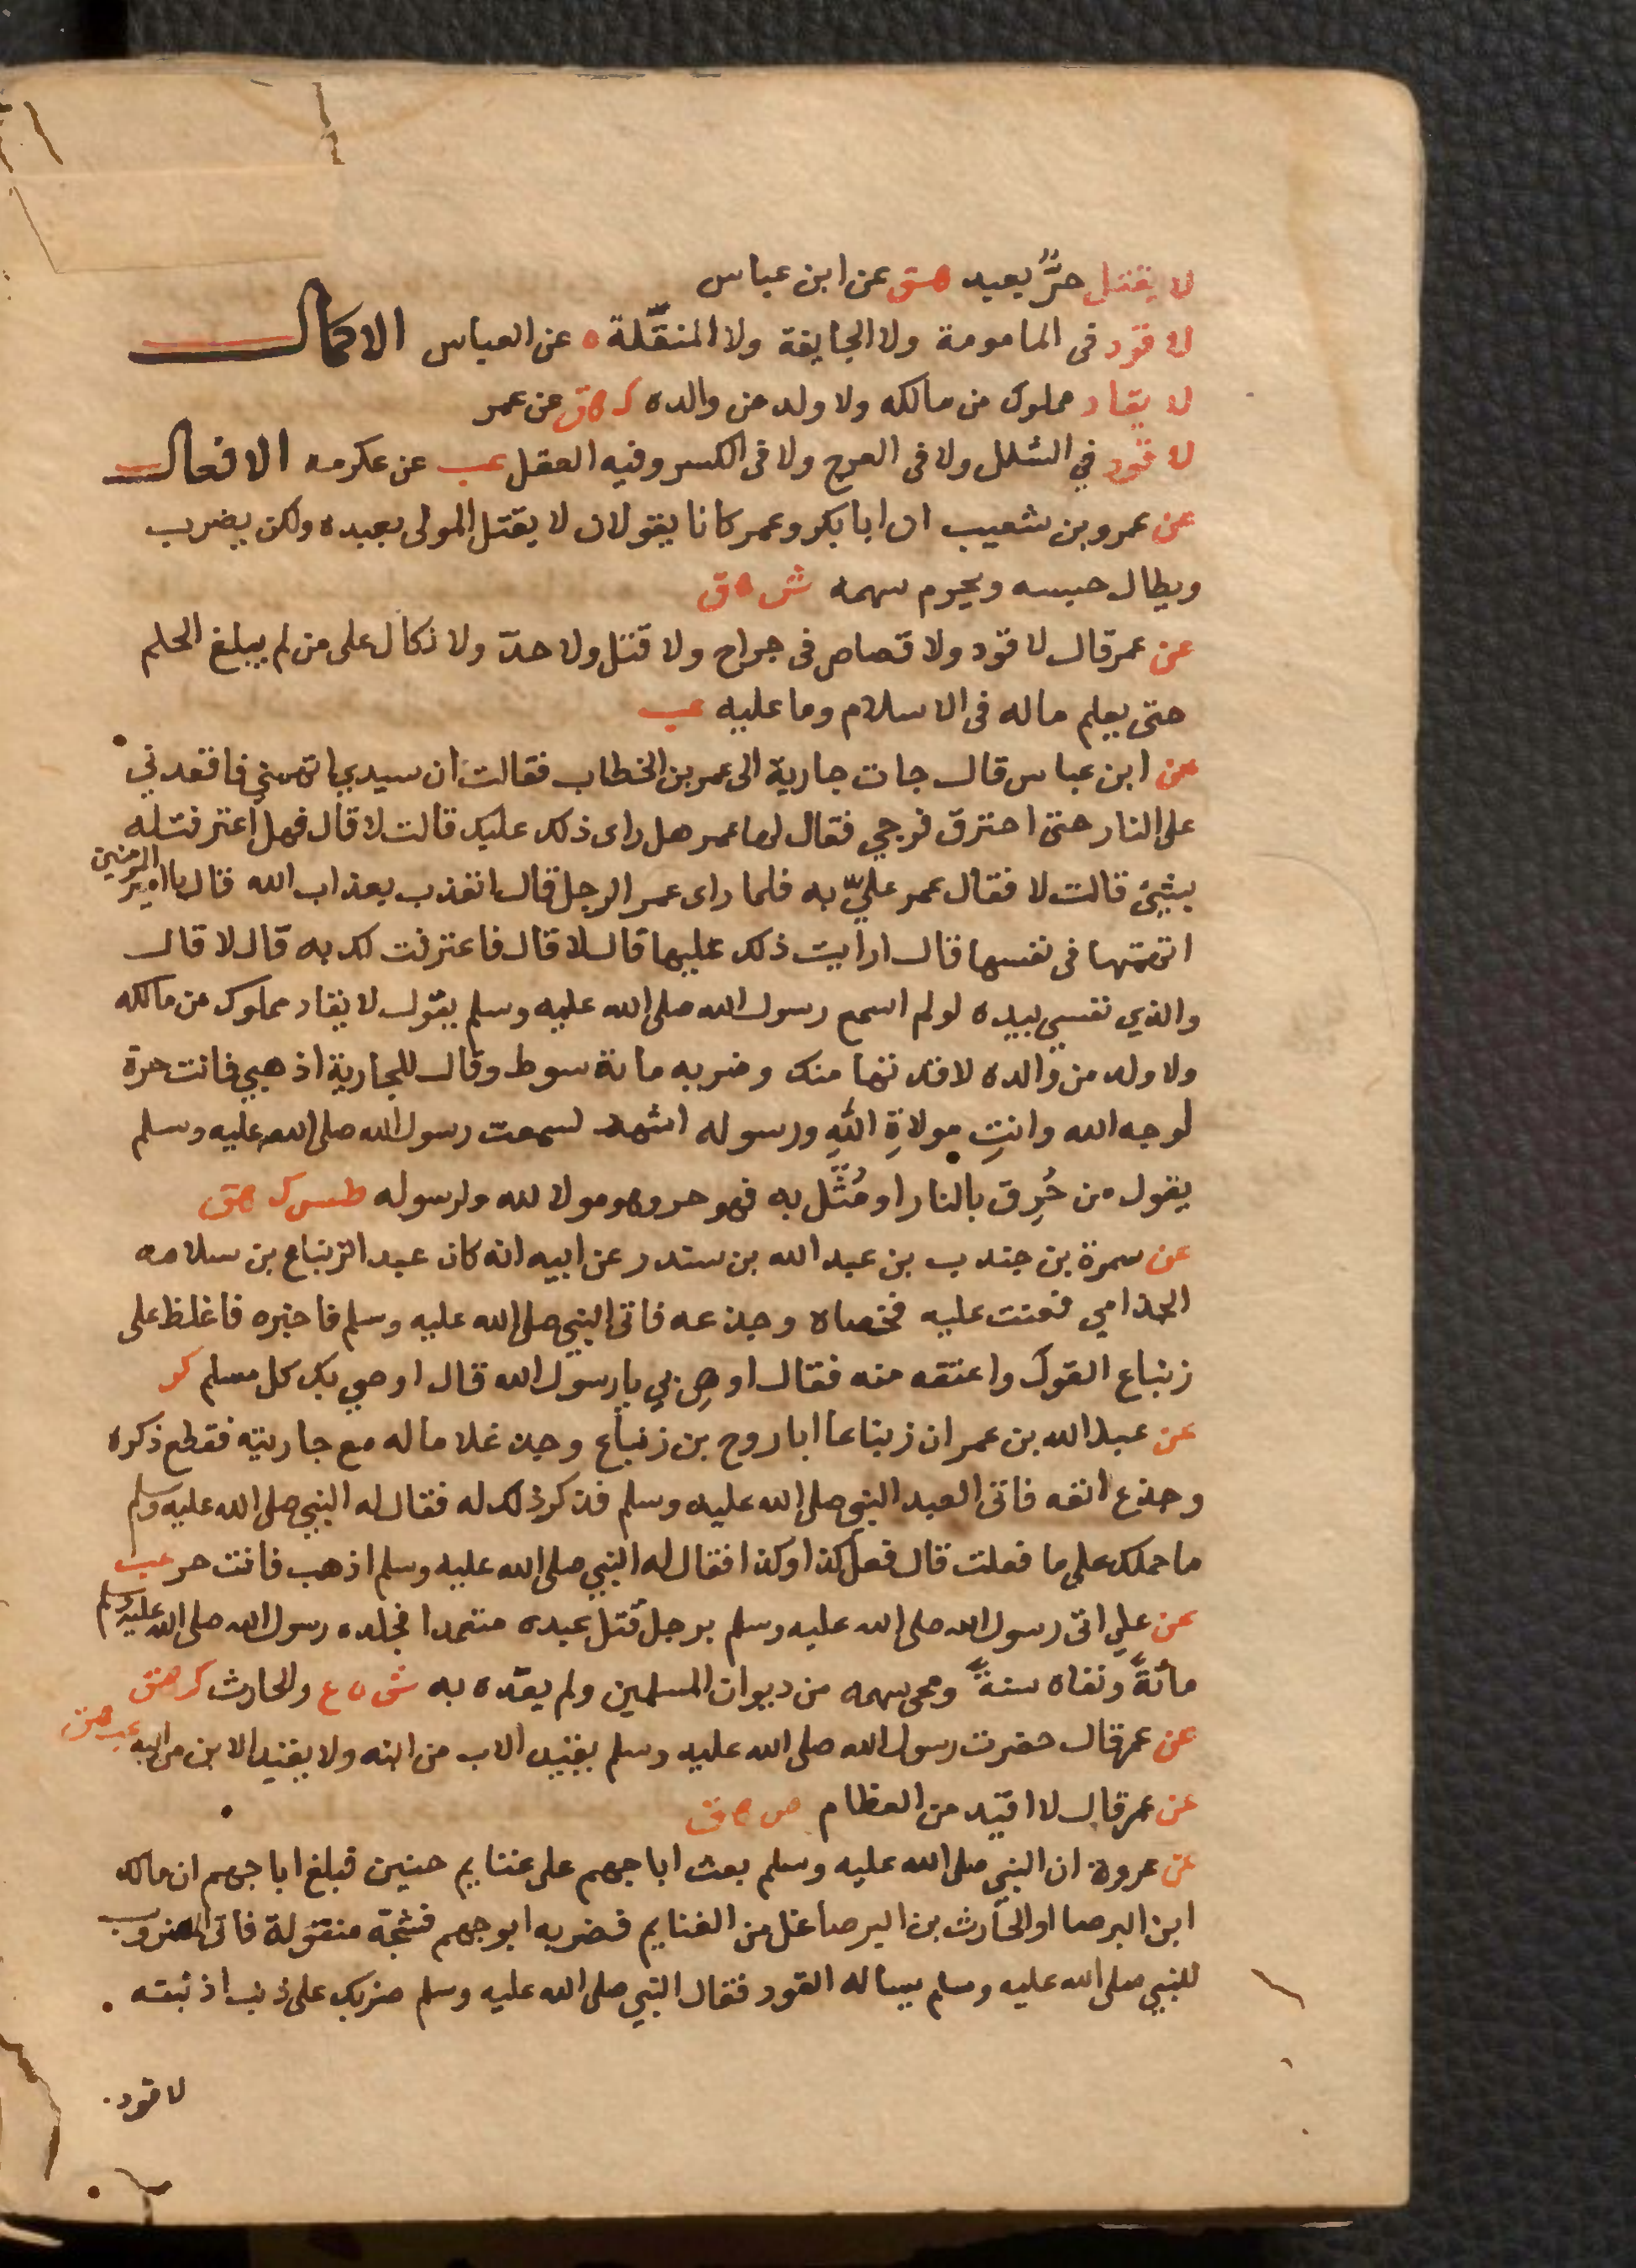 لا يقتل حرٌّ بعبد هق عن ابن عباس
لا قود فى المامومة ولا الجايفة ولا المنقّلة ه عن العباس الاكمال
لا يقاد مملوك من مالكه ولا ولد من والده ك هق عن عمر
لا قود في الشلل ولا فى العرج ولا فى الكسر وفيه العقل عب عن عكرمه الافعال
عن عمرو بن شعيب ان ابا بكر وعمر كانا يقولان لا يقتل المولى بعبده ولكن يضرب
ويطال حبسه ويحرم سهمه ش هق
عن عمر قال لا قود ولا قصاص فى جراح ولا قتل ولا حدّ ولا نكال على من لم يبلغ الحلم
حتى يعلم ماله فى الاسلام وما عليه عب
عن ابن عباس قال جات جارية الى عمر بن الخطاب فقالت ان سيدي اتهمني فاقعدني
على النار حتى احترق فرجي فقال لها عمر هل راى ذلك عليك قالت لا قال فهل اعترفت له
بشئ قالت لا فقال عمر عليّ به فلما راى عمر الرجل قال اتعذب بعذاب الله قال يا امير المومنين
اتهمتها فى نفسها قال ارايت ذلك عليها قال لا قال فاعترفت لك به قال لا قال
والذي نفسي بيده لو لم اسمع رسول الله صلى الله عليه وسلم يقول لا يقاد مملوك من مالكه
ولا ولد من والده لاقدتها منك وضربه مائة سوط وقال للجارية اذهبي فانت حرة
لوجه الله وانتِ مولاةِ اللّهِ ورسوله اشهد لسمعت رسول الله صلى الله عليه وسلم
يقول من حُرِق بالنار او مُثّل به فهو حر وهو مولا لله ولرسوله طس ك هق
عن سمرة بن جندب بن عبد الله بن سندر عن ابيه انه كان عبد الزنباع بن سلامه
الجذامي فعتت عليه فخصاه وجدعه فاتى النبي صلى الله عليه وسلم فاخبره فاغلظ على
زنباع القول واعتقه منه فقال اوصِ بي يا رسول الله قال اوصي بك كل مسلم كر
عن عبد الله بن عمر ان زنباعا ابا روح بن زنباع وجد غلاما له مع جاريته فقطع ذكره
وجذع انفه فاتى العبد النبي صلى الله عليه وسلم فذكر ذلك له فقال له النبي صلى الله عليه وسلم
ما حملك على ما فعلت قال فعل كذا وكذا فقال له النبي صلى الله عليه وسلم اذهب فانت حر عب
عن علي اتى رسول الله صلى الله عليه وسلم برجل قتل عبده متعمدا فجلده رسول الله صلى الله عليه وسلم
مائةً ونفاه سنةً ومحى سهمه من ديوان المسلمين ولم يقده به ش ه ع والحارث ك هق
عن عمر قال حضرت رسول الله صلى الله عليه وسلم يقيد الاب من ابنه ولا يقيد الابن من ابيه عب هق
عن عمر قال لا اقيد من العظام ص هق
عن عروة ان النبي صلى الله عليه وسلم بعث ابا جهم على غنايم حنين فبلغ ابا جهم ان مالك
ابن البرصا او الحارث بن البرصا غل من الغنايم فضربه ابو جهم فشجّه منقولة فاتى المضروب
للنبي صلى الله عليه وسلم يساله القود فقال النبي صلى الله عليه وسلم ضربك على ذنب اذنبته
لا قود